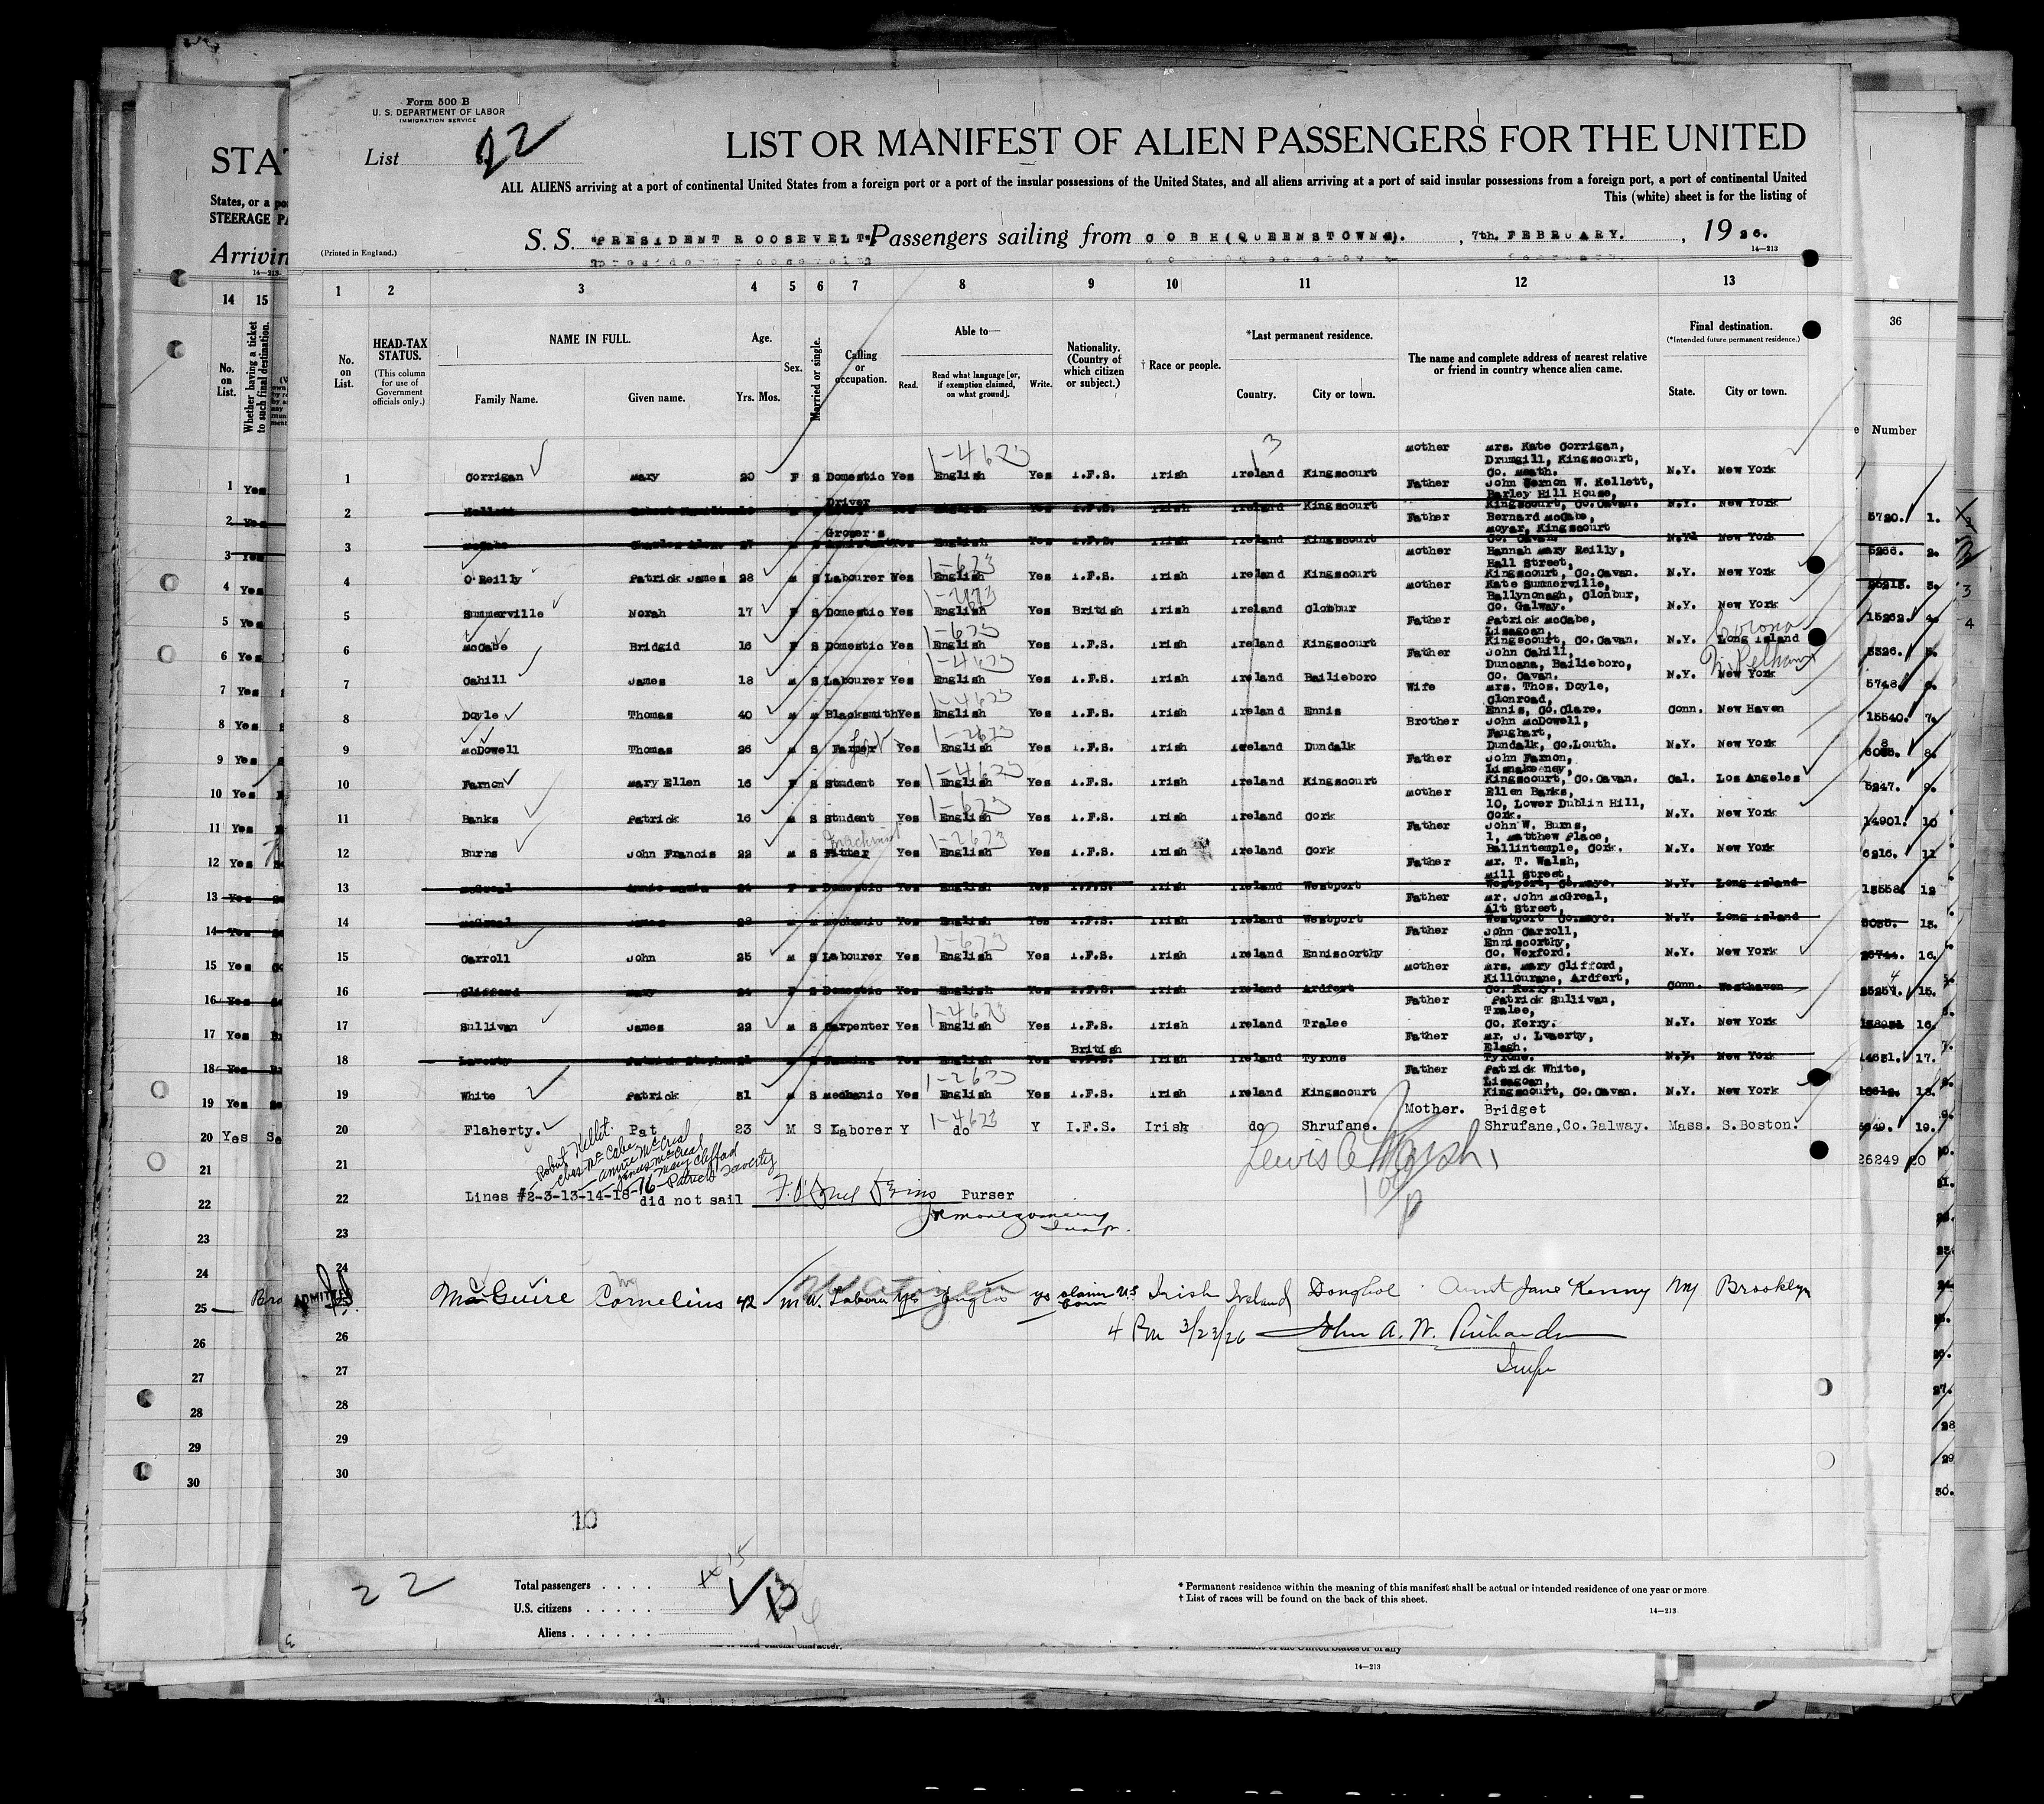 Form 500 B
U. S. DEPARTMENT OF LABOR
IMMIGRATION SERVICE
List 22
LIST OR MANIFEST OF ALIEN PASSENGERS FOR THE UNITED
ALL ALIENS arriving at a port of continental United States from a foreign port or a port of the insular possessions of the United States, and all aliens arriving at a port of said insular possessions from a foreign port, a port of continental United
This (white) sheet is for the listing of
(Printed in England.)
S. S. "PRESIDENT ROOSEVELT" Passengers sailing from COBH (QUEENSTOWN). , 7th. FEBRUARY. , 1926.
14—213
STA
States, or a po
STEERAGE PA
Arrivin
14—213
14 15
1 2 3 4 5 6 7 8 9 10 11 12 13
36
No. on List.
Whether having a ticket to such final destination.
No. on List.
HEAD-TAX STATUS.
(This column for use of Government officials only.)
NAME IN FULL.
Family Name.
Given name.
Age.
Yrs. Mos.
Sex.
Married or single.
Calling or occupation.
Able to—
Read.
Read what language [or, if exemption claimed, on what ground].
Write.
Nationality. (Country of which citizen or subject.)
† Race or people.
*Last permanent residence.
Country.
City or town.
The name and complete address of nearest relative or friend in country whence alien came.
Final destination.
(*Intended future permanent residence.)
State.
City or town.
Number
1 Corrigan Mary 20 F S Domestic Yes English Yes I.F.S. Irish Ireland Kingscourt Mother Mrs. Kate Corrigan, Drumgill, Kingscourt, Co. Meath. N.Y. New York
1-4623
2 Kellett 
Driver Yes English Yes I.F.S. Irish Ireland Kingscourt Father John Vernon W. Kellett, Barley Hill House, Kingscourt, Co.Cavan. N.Y. New York
3 McCabe Charles 27 M S Grocer's Assistant Yes English Yes I.F.S. Irish Ireland Kingscourt Father Bernard McCabe, Moyar, Kingscourt Co. Cavan. N.Y. New York
4 O'Reilly Patrick James 28 M S Labourer Yes English Yes I.F.S. Irish Ireland Kingscourt Mother Hannah Mary Reilly, Hall Street, Kingscourt, Co.Cavan. N.Y. New York
1-623
5 Summerville Norah 17 F S Domestic Yes English Yes British Irish Ireland Clonbur Mother Kate Summerville, Ballynonagh, Clonbur, Co. Galway. N.Y. New York
6 McCabe Bridgid 16 F S Domestic Yes English Yes I.F.S. Irish Ireland Kingscourt Father Patrick McCabe, Lisagoan, Kingscourt, Co.Cavan. N.Y. Long Island
1-623
Corona
7 Cahill James 18 M S Labourer Yes English Yes I.F.S. Irish Ireland Bailieboro Father John Cahill, Duncana, Bailieboro, Co. Cavan. N.Y. New York
1-4623
N. Pelham
8 Doyle Thomas 40 M M Blacksmith Yes English Yes I.F.S. Irish Ireland Ennis Wife Mrs. Thos. Doyle, Clonroad, Ennis, Co.Clare. Conn. New Haven
1-4623
9 McDowell Thomas 26 M S Farmer Yes English Yes I.F.S. Irish Ireland Dundalk Brother John McDowell, Faughart, Dundalk, Co.Louth. N.Y. New York
Lab
1-2623
10 Farnon Mary Ellen 16 F S Student Yes English Yes I.F.S. Irish Ireland Kingscourt Father John Farnon, Kingscourt, Co.Cavan. Cal. Los Angeles
1-4623
11 Banks Patrick 16 M S Student Yes English Yes I.F.S. Irish Ireland Cork Mother Ellen Banks, 10, Lower Dublin Hill, Cork. N.Y. New York
1-623
12 Burns John Francis 22 M S Fitter Yes English Yes I.F.S. Irish Ireland Cork Father John W. Burns, 1, Matthew Place, Ballintemple, Cork. N.Y. New York
Machinist
1-2623
13 McGreal Annie Maria 24 F M Domestic Yes English Yes I.F.S. Irish Ireland Westport Father Mr. T. Walsh, Mill Street, Westport, Co.Mayo. N.Y. Long Island
14 McGreal James 28 M M Mechanic Yes English Yes I.F.S. Irish Ireland Westport Father Mr. John McGreal, Alt Street, Westport Co.Mayo. N.Y. Long Island
15 Carroll John 25 M S Labourer Yes English Yes I.F.S. Irish Ireland Enniscorthy Father John Carroll, Enniscorthy, Co. Wexford. N.Y. New York
1-623
16 Clifford Mary 24 F S Domestic Yes English Yes I.F.S. Irish Ireland Ardfert Mother Mrs. Mary Clifford, Killourane, Ardfert, Co. Kerry. Conn. Westhaven
17 Sullivan James 22 M S Carpenter Yes English Yes I.F.S. Irish Ireland Tralee Father Patrick Sullivan, Tralee, Co. Kerry. N.Y. New York
1-4623
18 Laverty Patrick Stephen 21 M S Farming Yes English Yes British Irish Ireland Tyrone Father Mr. J. Lvaerty, Elagh. Tyrone. N.Y. New York
19 White Patrick 31 M S Mechanic Yes English Yes I.F.S. Irish Ireland Kingscourt Father Patrick White, Lisagoan, Kingscourt, Co.Cavan. N.Y. New York
1-2623
20 Flaherty. Pat 23 M S Laborer Y do Y I.F.S. Irish do Shrufane. Mother. Bridget Shrufane,Co.Galway. Mass. S.Boston.
1-4623
21
Robert Kellet.
Chas McCabe
Annie McGreal
James McGreal
Mary Clifford
Patrick Laverty
Lewis C Marsh
22 Lines #2-3-13-14-18-16 did not sail Purser
JR Montgomery
Insp.
23
24
ADMITTED
25 McGuire Cornelius 42 M W. Laborer yes English ys claim U.S born Irish Ireland Donghol Aunt Jane Kenny NY Brooklyn
4 PM 3/23/26 John A. W. Richards
Insp
26
27
28
29
30
10
22
Total passengers . . . . 15
U.S. citizens . . . . . .
Aliens . . . . . .
* Permanent residence within the meaning of this manifest shall be actual or intended residence of one year or more
† List of races will be found on the back of this sheet.
14—213
14—213